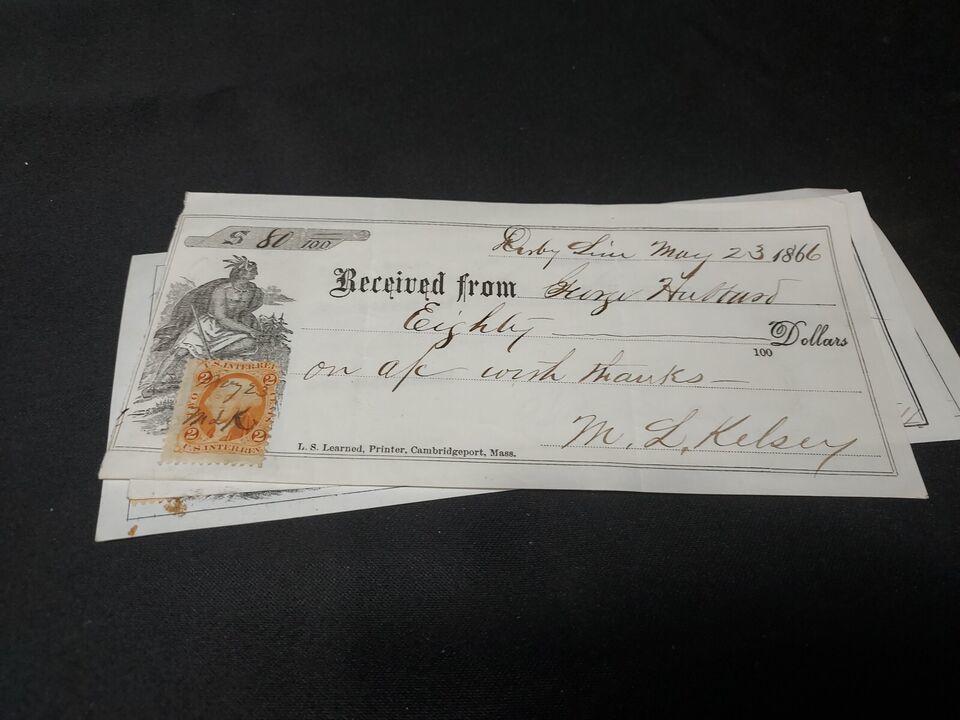 $ 80 —/100
Derby Line May 23 1866
Received from George Hubbard
Eighty Dollars
100
on a/c with thanks —
M. L. Kelsey
L. S. Learned, Printer, Cambridgeport, Mass.
U.S. INTER. REV.
2 2
May 23
M L K
2 2
U.S. INTER. REV.